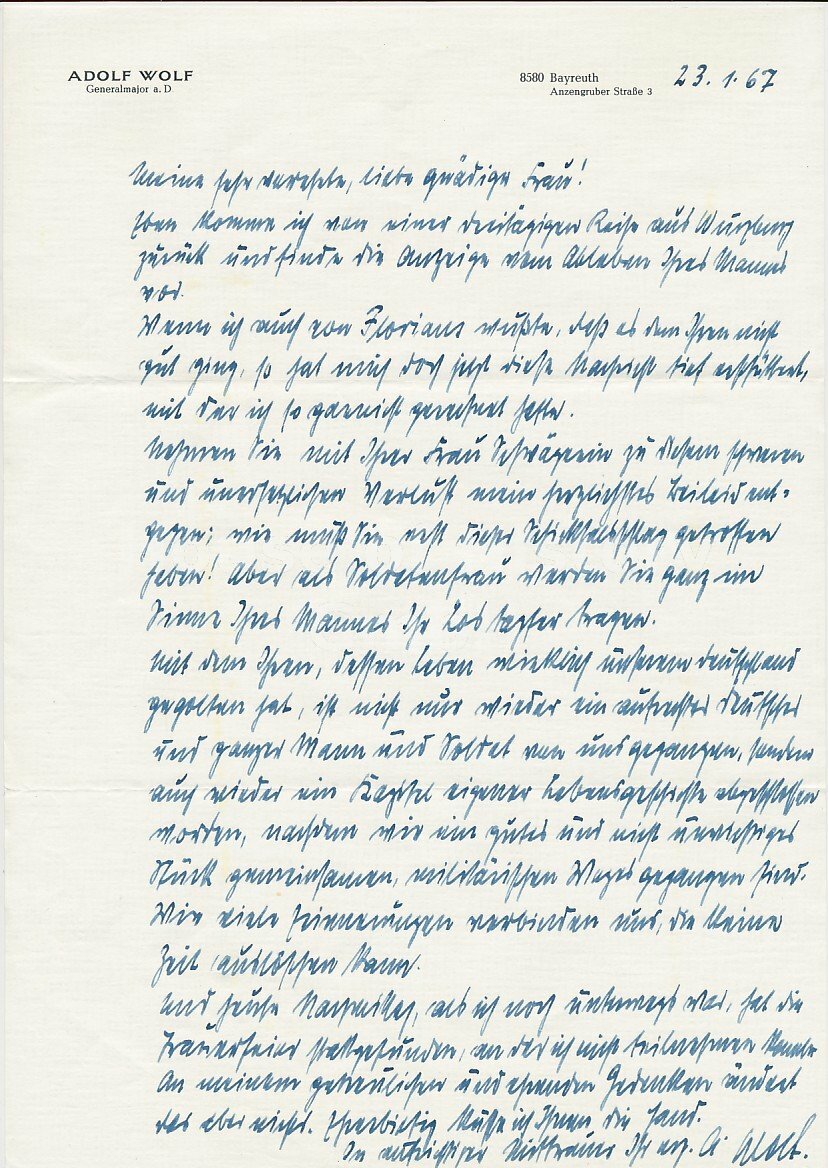 ADOLF WOLF
Generalmajor a. D
8580 Bayreuth
Anzengruber Straße 3
23. 1. 67
Meine sehr verehrte, liebe gnädige Frau!
Eben komme ich von einer dreitägigen Reise aus Würzburg
zurück und finde die Anzeige vom Ableben Ihres Mannes
vor.
Wenn ich auch von Florians wußte, daß es dem Ihren nicht
gut ging, so hat mich doch jetzt diese Nachricht tief erschüttert,
mit der ich so garnicht gerechnet hatte.
Nehmen Sie mit Ihrer Frau Schwägerin zu diesem schweren
und unersetzlichen Verlust mein herzlichstes Beileid ent-
gegen; wie muß Sie erst dieser Schicksalsschlag getroffen
haben! Aber als Soldatenfrau werden Sie ganz im
Sinne Ihres Mannes Ihr Los tapfer tragen.
Mit dem Ihren, dessen Leben wirklich unserem Deutschland
gegolten hat, ist nicht nur wieder ein aufrechter Deutscher
und ganzer Mann und Soldat von uns gegangen, sondern
auch wieder ein Kapitel eigener Lebensgeschichte abgeschlossen
worden, nachdem wir ein gutes und nicht unwichtiges
Stück gemeinsamen, militärischen Weges gegangen sind.
Wie viele Erinnerungen verbinden uns, die keine
Zeit auslöschen kann.
Und heute Nachmittag, als ich noch unterwegs war, hat die
Trauerfeier stattgefunden, an der ich nicht teilnehmen konnte
An meinem getreulichen und ehrenden Gedenken ändert
das aber nichts. Ehrerbietig küsse ich Ihnen die Hand.
In aufrichtiger Mittrauer Ihr erg. A. Wolf.